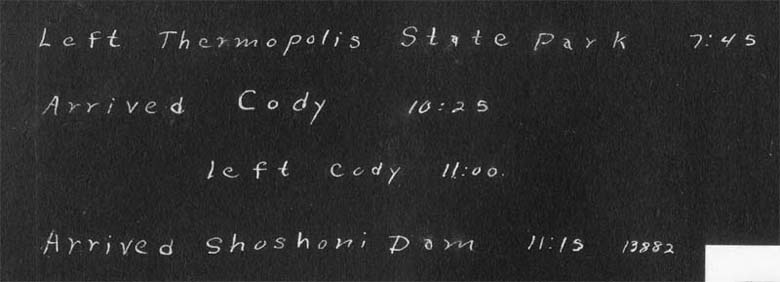 Left Thermopolis State Park 7:45
Arrived Cody 10:25
left Cody 11:00.
Arrived Shoshoni Dam 11:15 13882